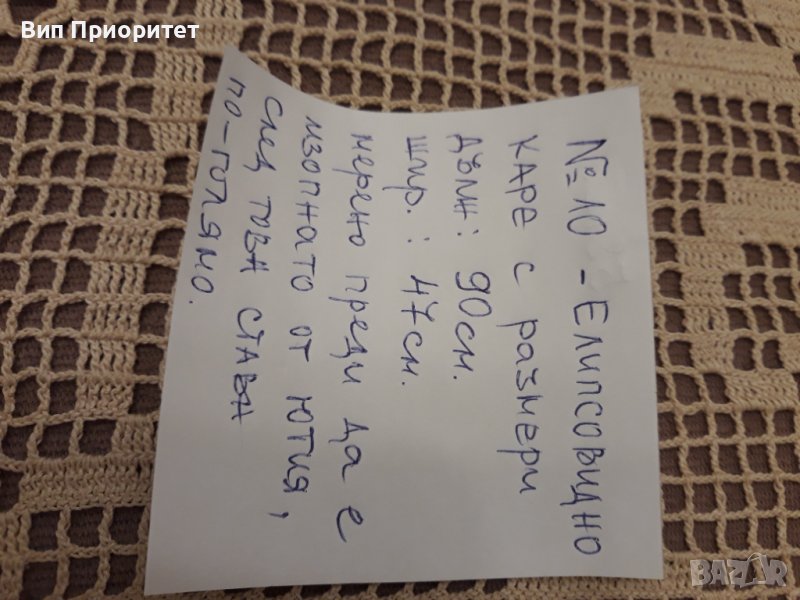 Вип Приоритет
№ 10 - ЕЛИПСОВИДНО
КАРЕ С размери
ДЪЛЖ: 90см.
шир.: 47см.
мерено преди да е
изопнато от ютия,
след това става
по-голямо.
BAZAR